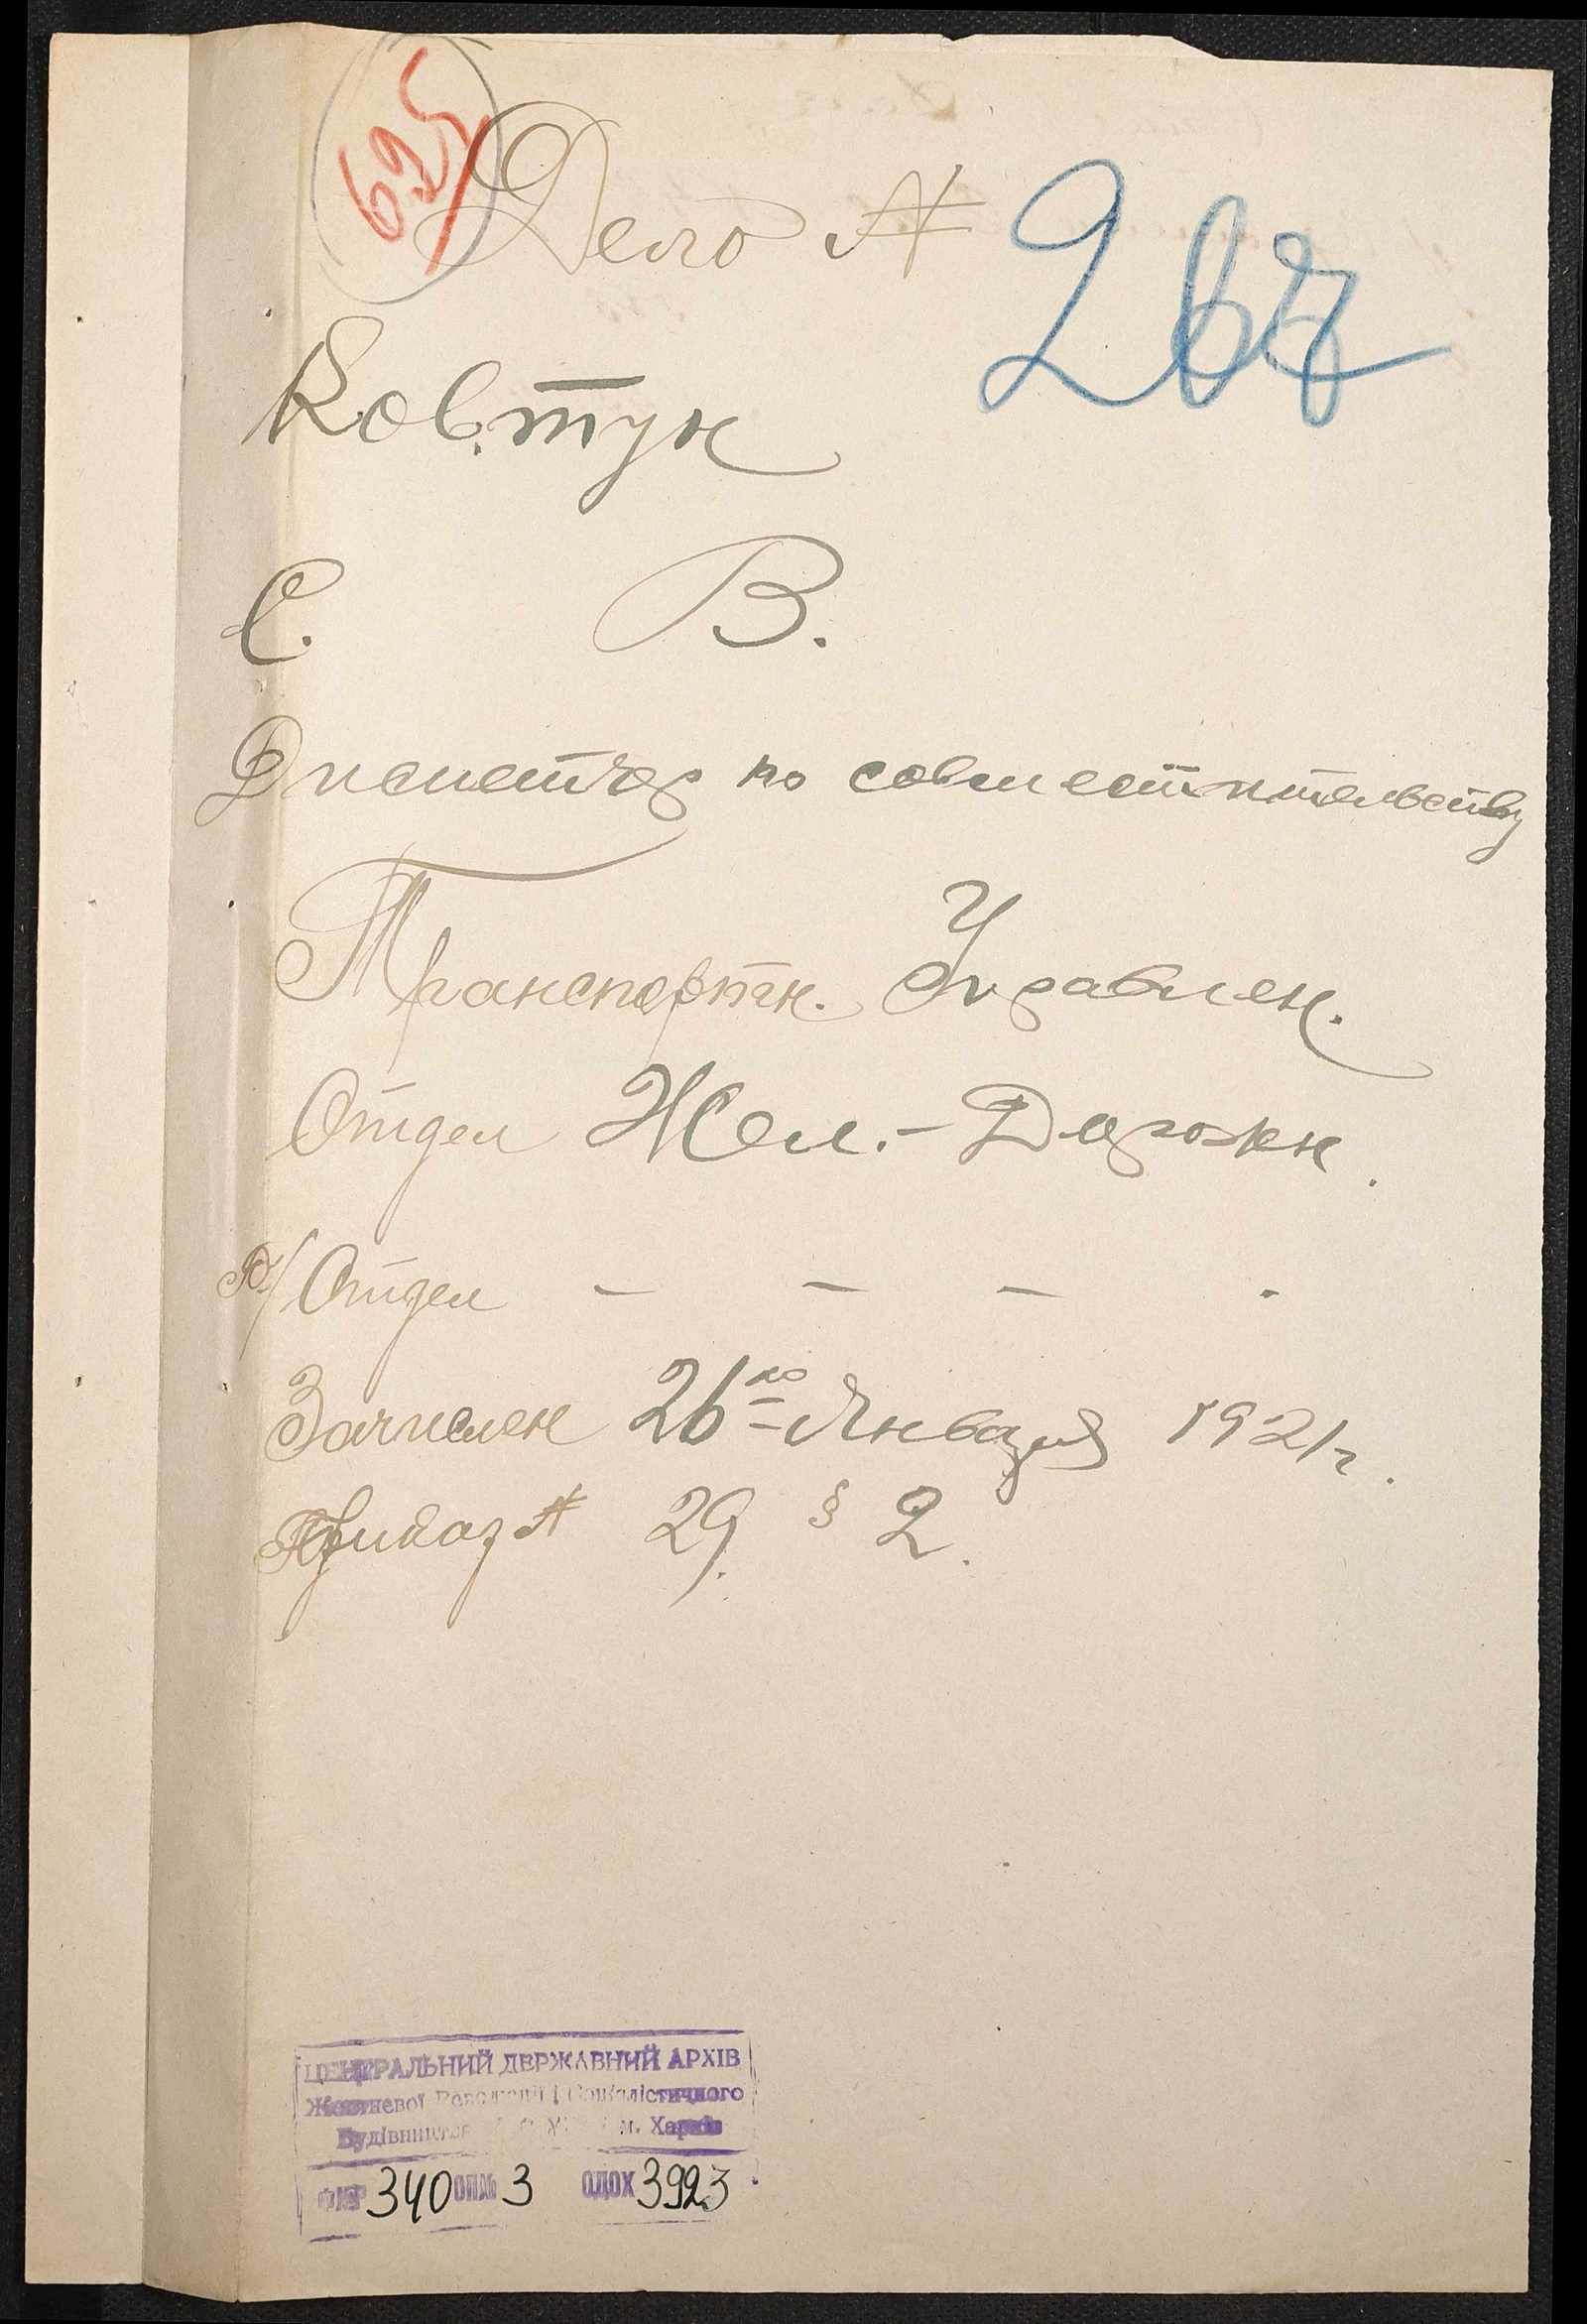 625
Дело №
Ковтун
С. В.
Диспетчер по совместительству
Транспортн. Управлен.
Отдел Жел.-Дорожн.
П/Отдел — — — .
Зачислен 26го Января 1921 г.
Приказ № 29. § 2.
ЦЕНТРАЛЬНИЙ ДЕРЖАВНИЙ АРХІВ
Жовтневої Революції і Соціалістичного
Будівництва м. Харків
Ф№Р 340 ОП№ 3 ОДОХ 3923